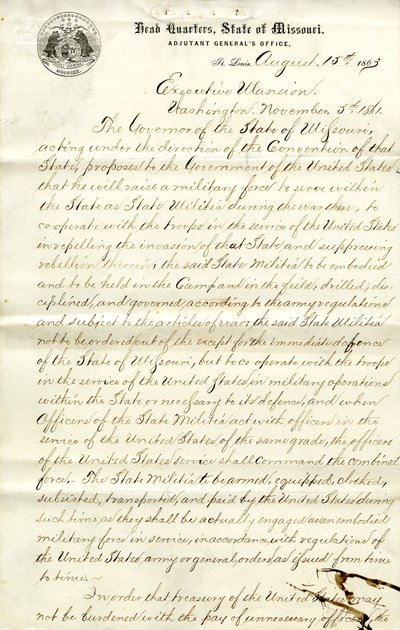 Head Quarters, State of Missouri.
ADJUTANT GENERAL'S OFFICE,
St. Louis, August. 15th 1863
Executive Mansion.
Washington. November. 5th 1861.
The Governor of the State of Missouri,
acting under the direction of the Convention of that
State, proposes to the Government of the United States
that he will raise a military force to serve within
the State as State Militia during the war there, to
co-operate with the troops in the service of the United States
in repelling the invasion of that State and suppressing
rebellion therein; the said State Militia to be embodied
and to be held in the Camp and in the field, drilled, dis-
ciplined, and governed, according to the army regulations
and subject to the articles of war; the said State Militia
not to be ordered out of the except for the immediate defence
of the State of Missouri, but to co operate with the troops
in the service of the United States in military operations
within the State or necessary to its defence, and when
Officers of the State Militia act with officers in the
service of the United States of the same grade, the officers
of the United States service shall command the combined
force,- The State Militia to be armed, equipped, clothed,
subsisted, transported, and paid by the United States during
such time, as they shall be actually engaged as an embodied
military force in service, in accordance with regulations of
the United States army or general orders, as issued from time
to time. ~
In order that treasury of the United States may
not be burdened with the pay of unnecessary officers, the